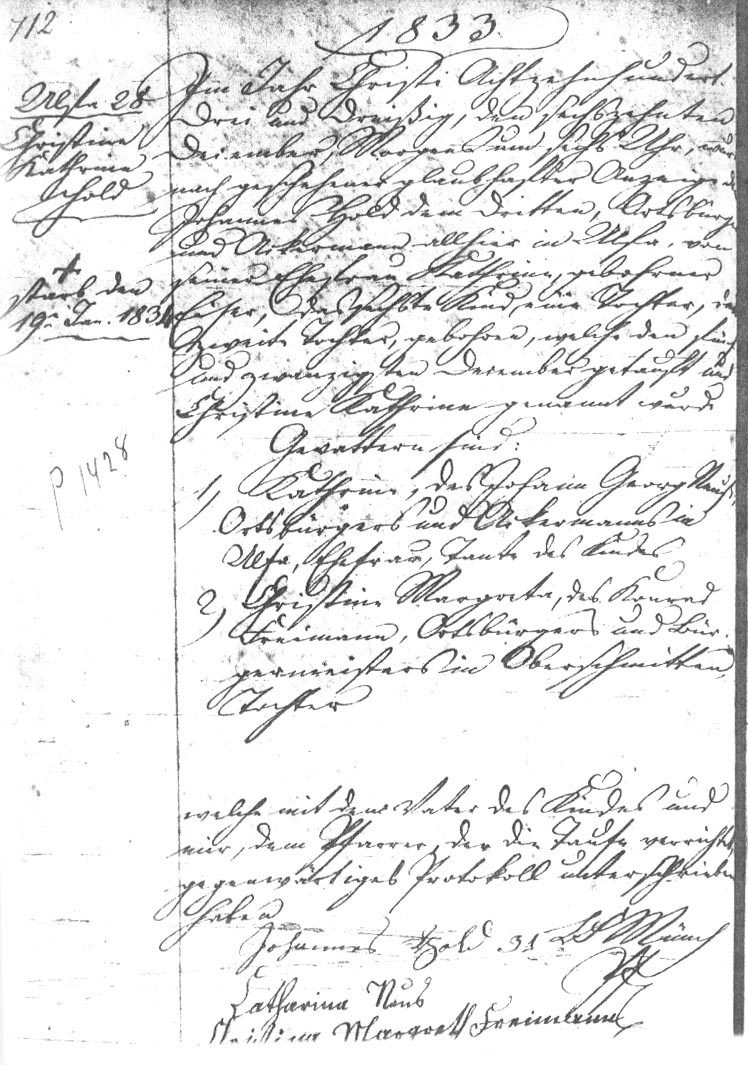 712
1833.
Ulfa 28
Christine
Kathrine
Hold
† starb den
19n Jan. 1834
p 1428
Im Jahr Christi Achtzehnhundert
Drei und Dreißig, den sechszehnten
December, Morgens um sechs Uhr, wurde
nach geschehener glaubhafter Anzeige des
Johannes Hold dem Dritten, Ortsbürger
und Ackermann allhier in Ulfa, von
seiner Ehefrau Kathrine, gebohrner
das sechste Kind, eine Tochter, der
zweite Tochter, gebohren, welche den fünf
und zwanzigsten December getauft und
Christine Kathrine genannt wurde
Gevattern sind:
1, Kathrine, des Johann Georg Naus,
Ortsbürgers und Ackermanns in
Ulfa, Ehefrau, Tante des Kindes
2) Christine Margreta, des Konrad
Freimann, Ortsbürgers und Bür-
germeisters in Oberschmitten,
Tochter
welche mit dem Vater des Kindes und
mir, dem Pfarrer, der die Taufe verrichtet,
gegenwärtiges Protokoll unterschrieben
haben
Johannes Hold 31 Münch
Catharina Naus
Christina Margreth Freimann